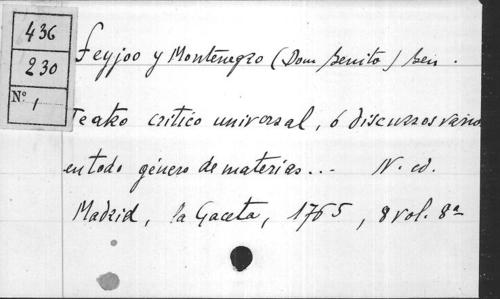 436
230
N° 1
Feyjoo y Montenegro (Dom benito) ben.
Teatro critico universal, ó discursos varios
en todo género de materias... N. ed.
Madrid, la Gaceta, 1765, 8 vol. 8ª